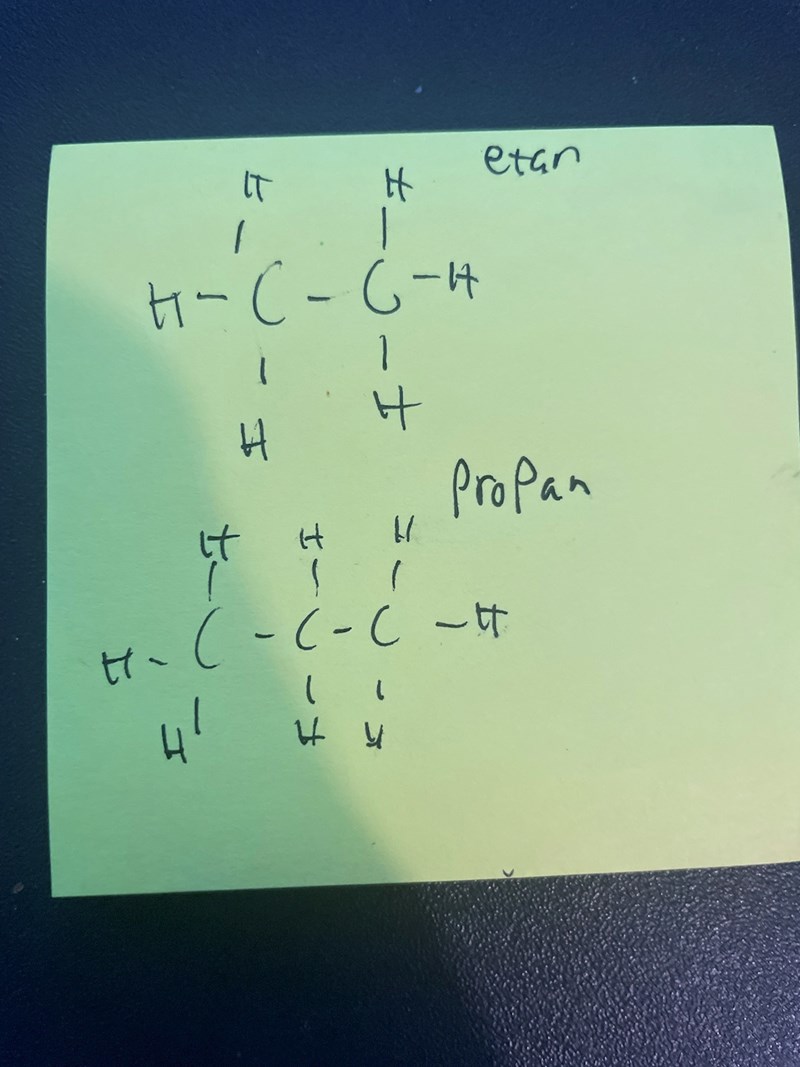 etan
H H
| |
H - C - C - H
| |
H H
Propan
H H H
| | |
H - C - C - C - H
| | |
H H H